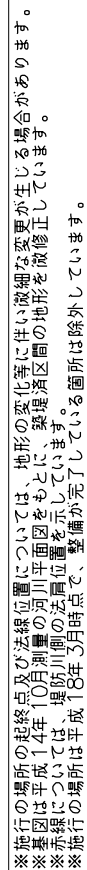 ※施行の場所の起終点及び法線位置については、地形の変化等に伴い微細な変更が生じる場合があります。
※基図は平成14年10月測量の河川平面図をもとに、築堤済区間の地形を微修正しています。
※赤線については、堤防川側の法肩位置を示しています。
※施行の場所は平成18年3月時点で、整備が完了している箇所は除外しています。